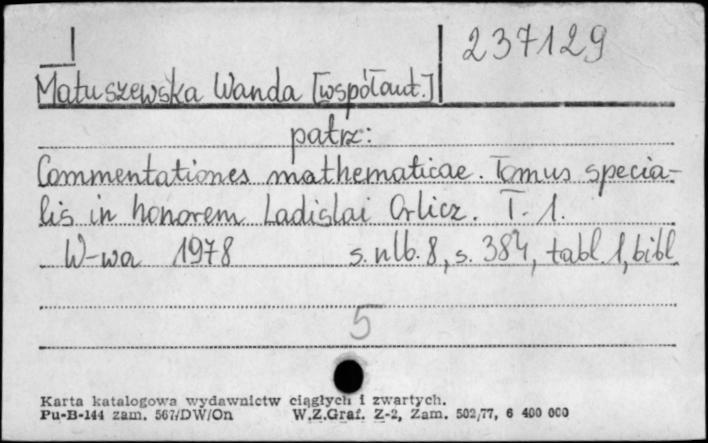 237129
Matuszewska Wanda [współaut.]
patrz:
Commentationes mathematicae. Tomus specia-
lis in honorem Ladislai Orlicz. T. 1.
W-wa 1978 s. nlb. 8, s. 384, tabl. 1, bibl
5
Karta katalogowa wydawnictw ciągłych i zwartych.
Pu-B-144 zam. 567/DW/On W.Z.Graf. Z-2, Zam. 502/77, 6 400 000